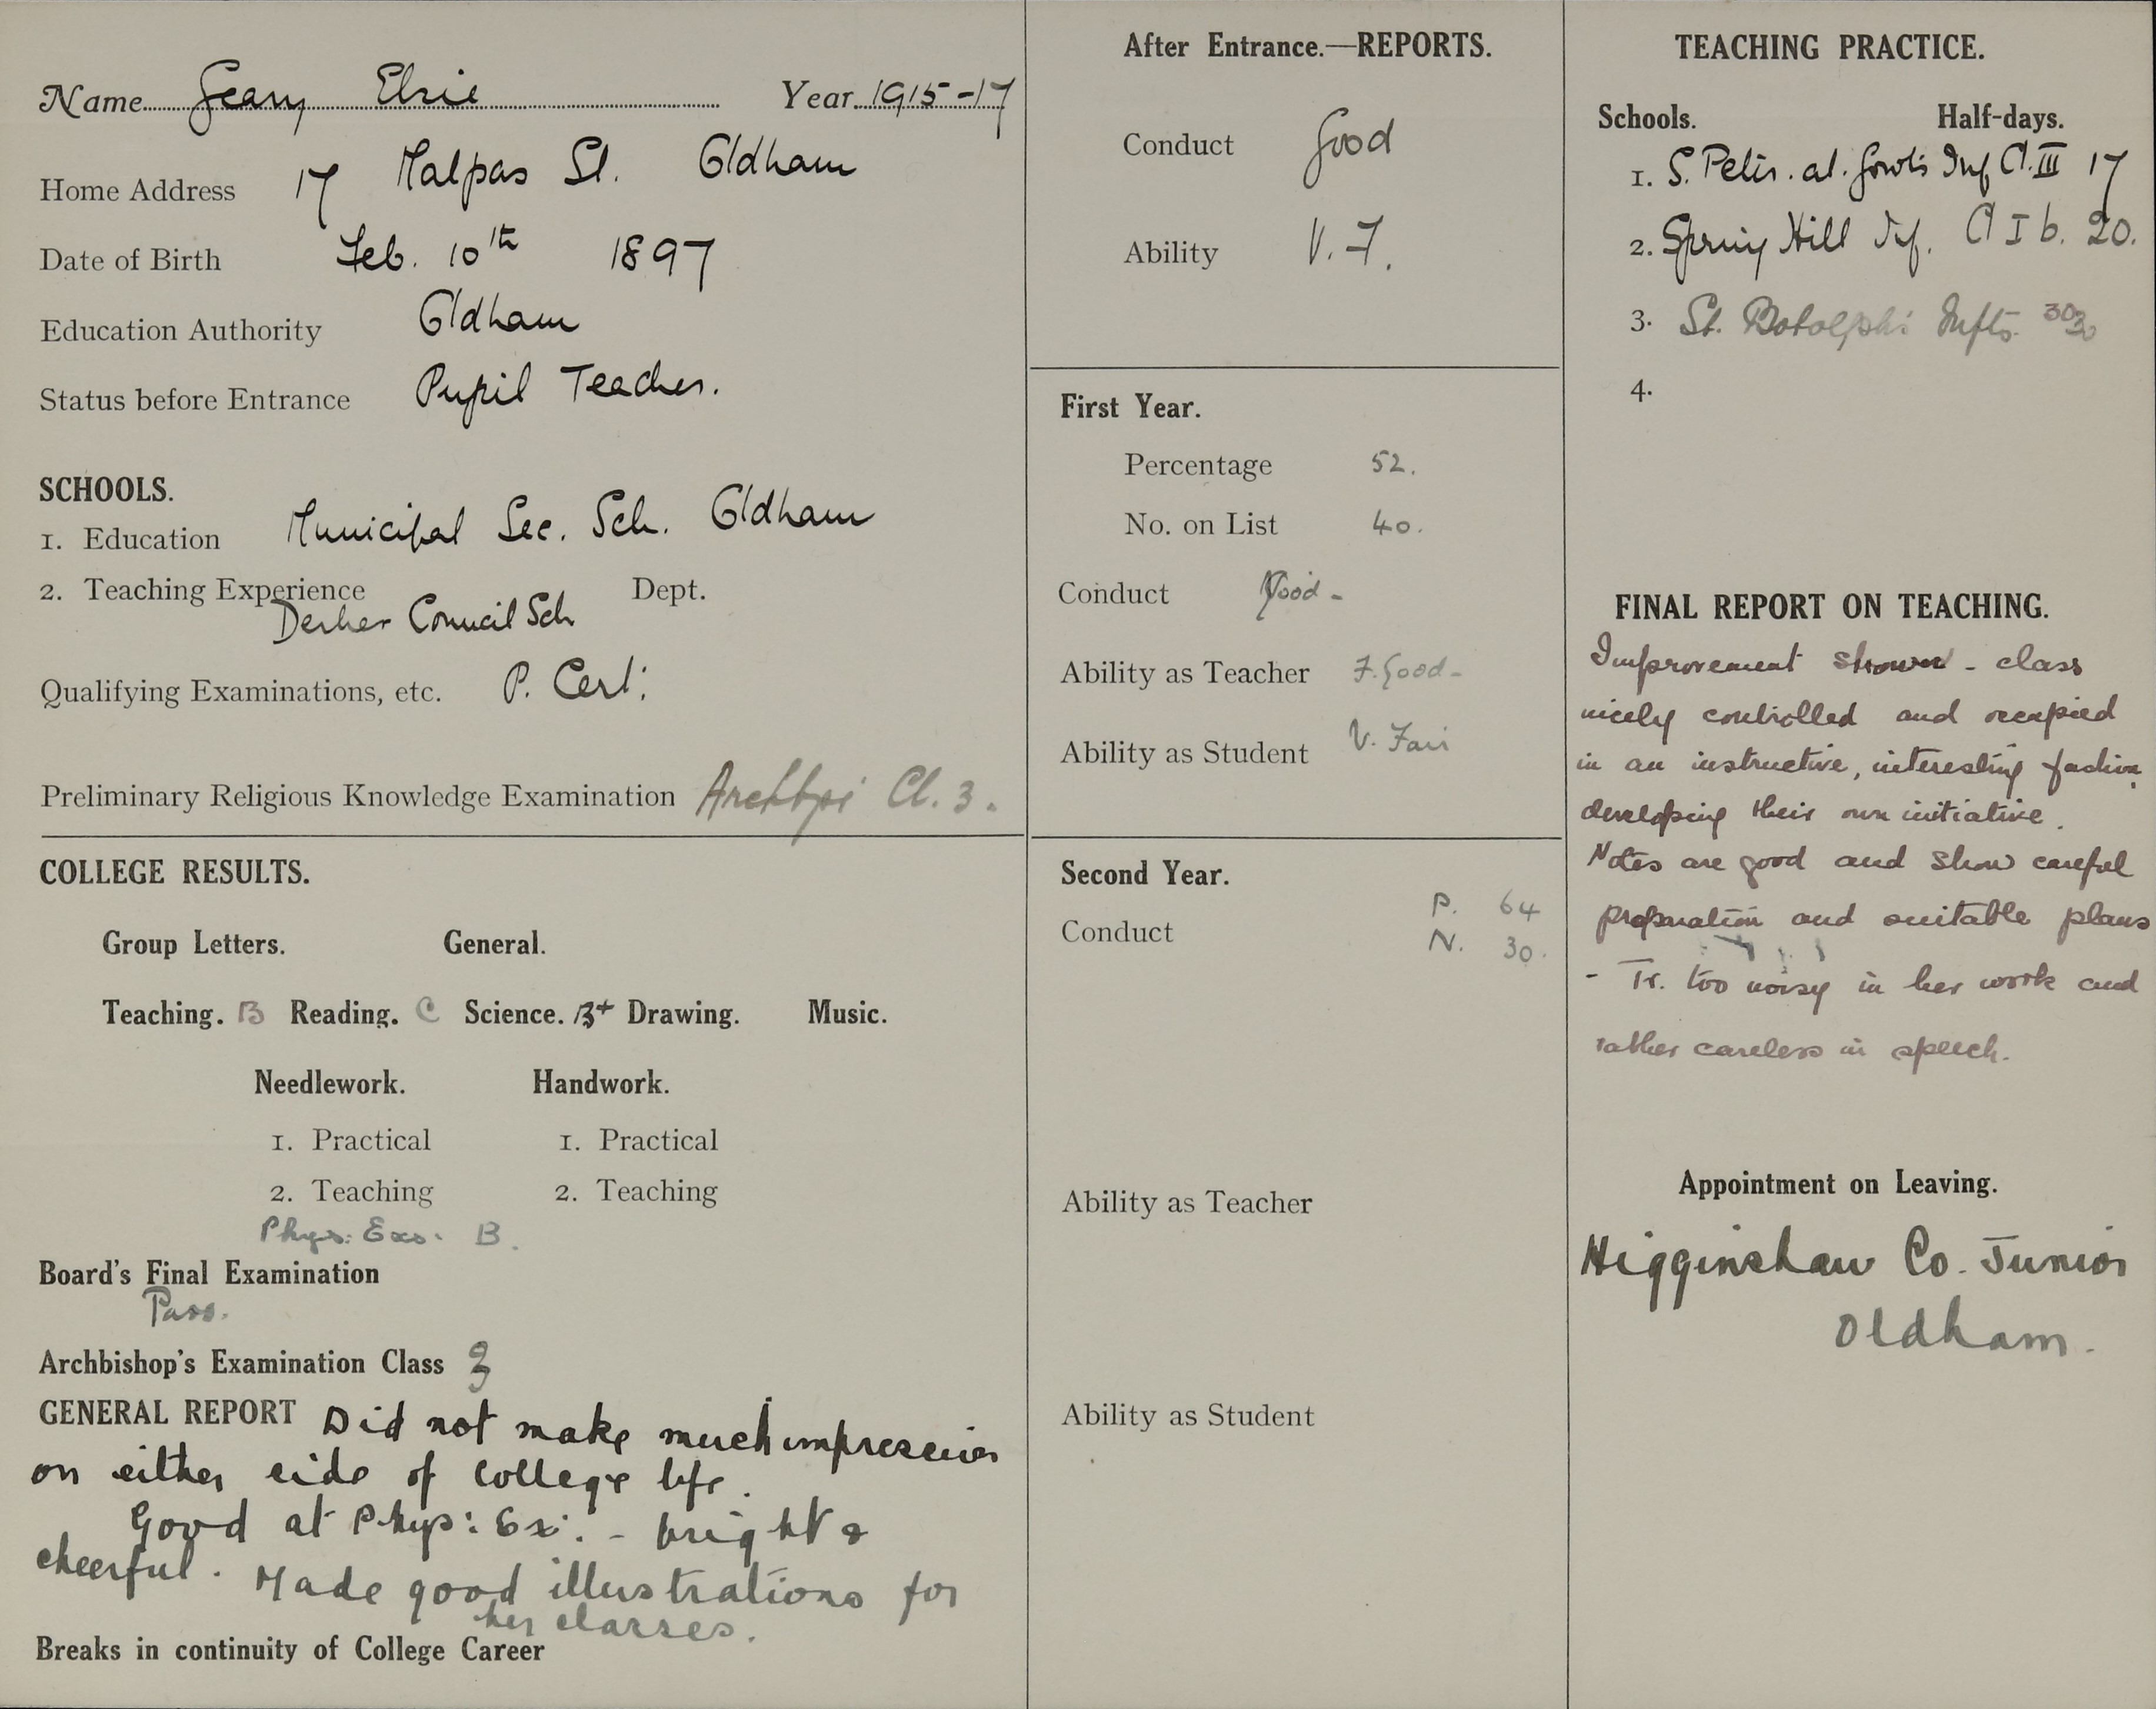 Name Geary Elsie Year 1915-17
Home Address 17 Malpas St. Oldham
Date of Birth Feb. 10th 1897
Education Authority Oldham
Status before Entrance Pupil Teacher.
SCHOOLS.
1. Education Municipal Sec. Sch. Oldham
2. Teaching Experience Dept.
Derker Council Sch
Qualifying Examinations, etc. P. Cert:
Preliminary Religious Knowledge Examination Archbps' Cl. 3.
COLLEGE RESULTS.
Group Letters. General.
Teaching. B Reading. C Science. B+ Drawing. Music.
Needlework. Handwork.
1. Practical 1. Practical
2. Teaching 2. Teaching
Phys: Exs. B.
Board's Final Examination
Pass.
Archbishop's Examination Class 3
GENERAL REPORT Did not make much impression
on either side of College life.
Good at Phys: Ex: - bright &
cheerful. Made good illustrations for
her classes.
Breaks in continuity of College Career
After Entrance.—REPORTS.
Conduct Good
Ability V. F.
First Year.
Percentage 52.
No. on List 40.
Conduct Good -
Ability as Teacher F. Good -
Ability as Student V. Fair
Second Year.
P. 64
Conduct N. 30.
Ability as Teacher
Ability as Student
TEACHING PRACTICE.
Schools. Half-days.
1. S. Peter. at. Gowts Inf Cl. III 17
2. Spring Hill Inf. Cl I b. 20.
3. St. Botolph's Infts. 30
4.
FINAL REPORT ON TEACHING.
Improvement shown - class
nicely controlled and occupied
in an instructive, interesting fashion,
developing their own initiative.
Notes are good and show careful
preparation and suitable plans
- Tr. too noisy in her work and
rather careless in speech.
Appointment on Leaving.
Higginshaw Co. Junior
Oldham.